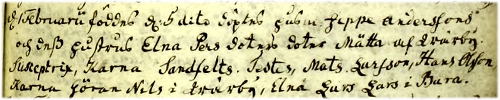 d. Februarii föddes d. 5 dito döptes husm. Jeppe Anderssons
och dess hustrus Elna Pers doters doter Mätta af Krarby.
Susceptrix, Karna Sandfelts. Testes, Mats Larsson, Hans Olsson
Karna Jöran Nils i Krarby, Elna Lars Lars i Bura.